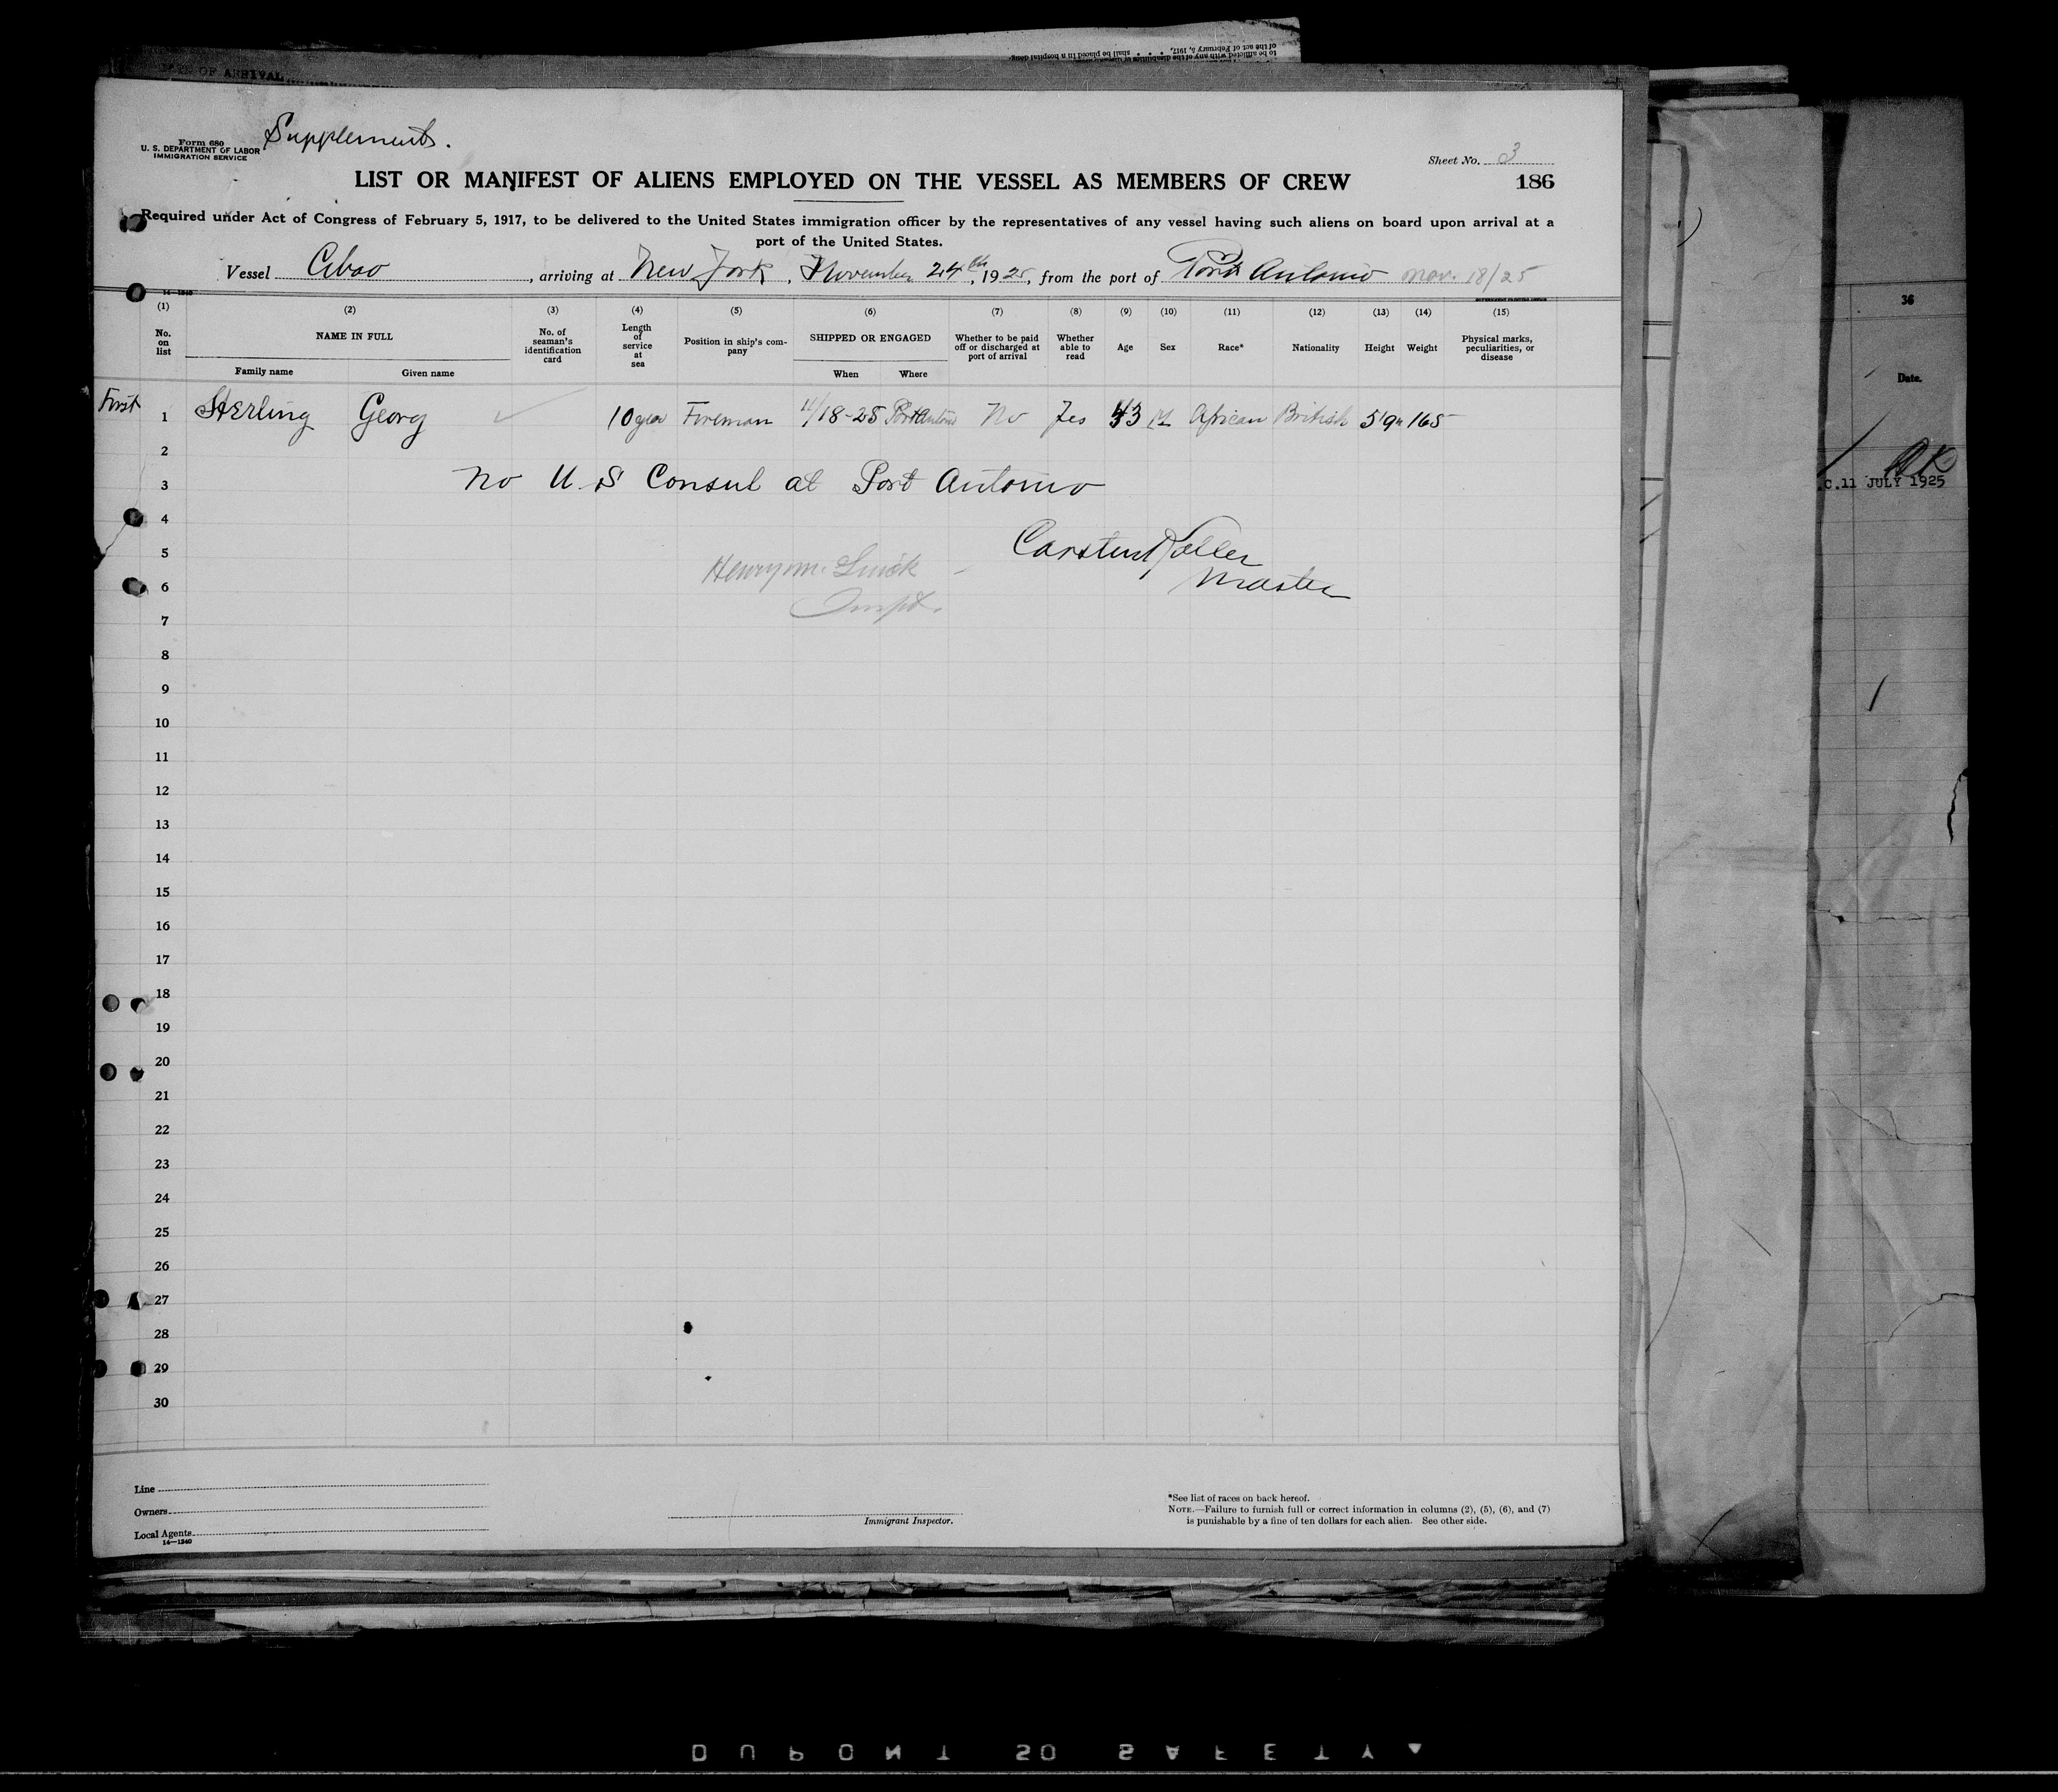 OF ARRIVAL
to be afflicted with any of the disabilities
of the act of February 5, 1917, . . . shall be placed in a hospital desig-
Supplement.
Form 680
U. S. DEPARTMENT OF LABOR
IMMIGRATION SERVICE
Sheet No. 3
LIST OR MANIFEST OF ALIENS EMPLOYED ON THE VESSEL AS MEMBERS OF CREW
186
Required under Act of Congress of February 5, 1917, to be delivered to the United States immigration officer by the representatives of any vessel having such aliens on board upon arrival at a
port of the United States.
Vessel Cibao, arriving at New York, November 24th, 1925, from the port of Port Antonio Nov. 18/25
14—1240
GOVERNMENT PRINTING OFFICE
(1) (2) (3) (4) (5) (6) (7) (8) (9) (10) (11) (12) (13) (14) (15)
No. on list
NAME IN FULL
Family name
Given name
No. of seaman's identification card
Length of service at sea
Position in ship's com-
pany
SHIPPED OR ENGAGED
When
Where
Whether to be paid off or discharged at port of arrival
Whether able to read
Age
Sex
Race*
Nationality
Height
Weight
Physical marks, peculiarities, or disease
First
1 Sterling Georg 10 year Foreman 11/18-25 Port Antonio No Yes 43 M African British 5'9" 165
2
3 No U.S Consul at Port Antonio
4
5 Carsten
6 Henry M. Master
Inspt.
7
8
9
10
11
12
13
14
15
16
17
18
19
20
21
22
23
24
25
26
27
28
29
30
Line
Owners
Local Agents
14—1240
Immigrant Inspector.
*See list of races on back hereof.
NOTE.—Failure to furnish full or correct information in columns (2), (5), (6), and (7)
is punishable by a fine of ten dollars for each alien. See other side.
36
Date.
OK
.C.11 JULY 1925
DUPONT SO SAFETY